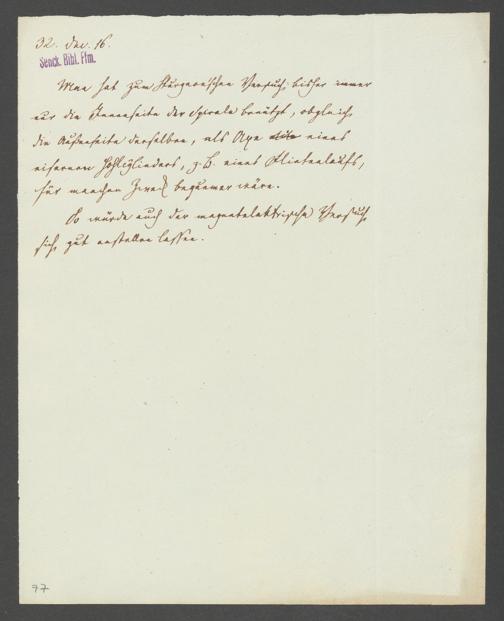 32. Dec. 16.
Senck. Bibl. Ffm.
Man hat zum Sturgeon'schen Versuch bisher immer
nur die Innenseite der Spirale benützt, obgleich
die Außenseite derselben, als Axe eines
eisernen Hohlcylinders, z. B. eines Flintenlaufs,
für manchen Zweck bequemer wäre.
So würde auch der magnetelektrische Versuch
sich gut anstellen lassen.
77